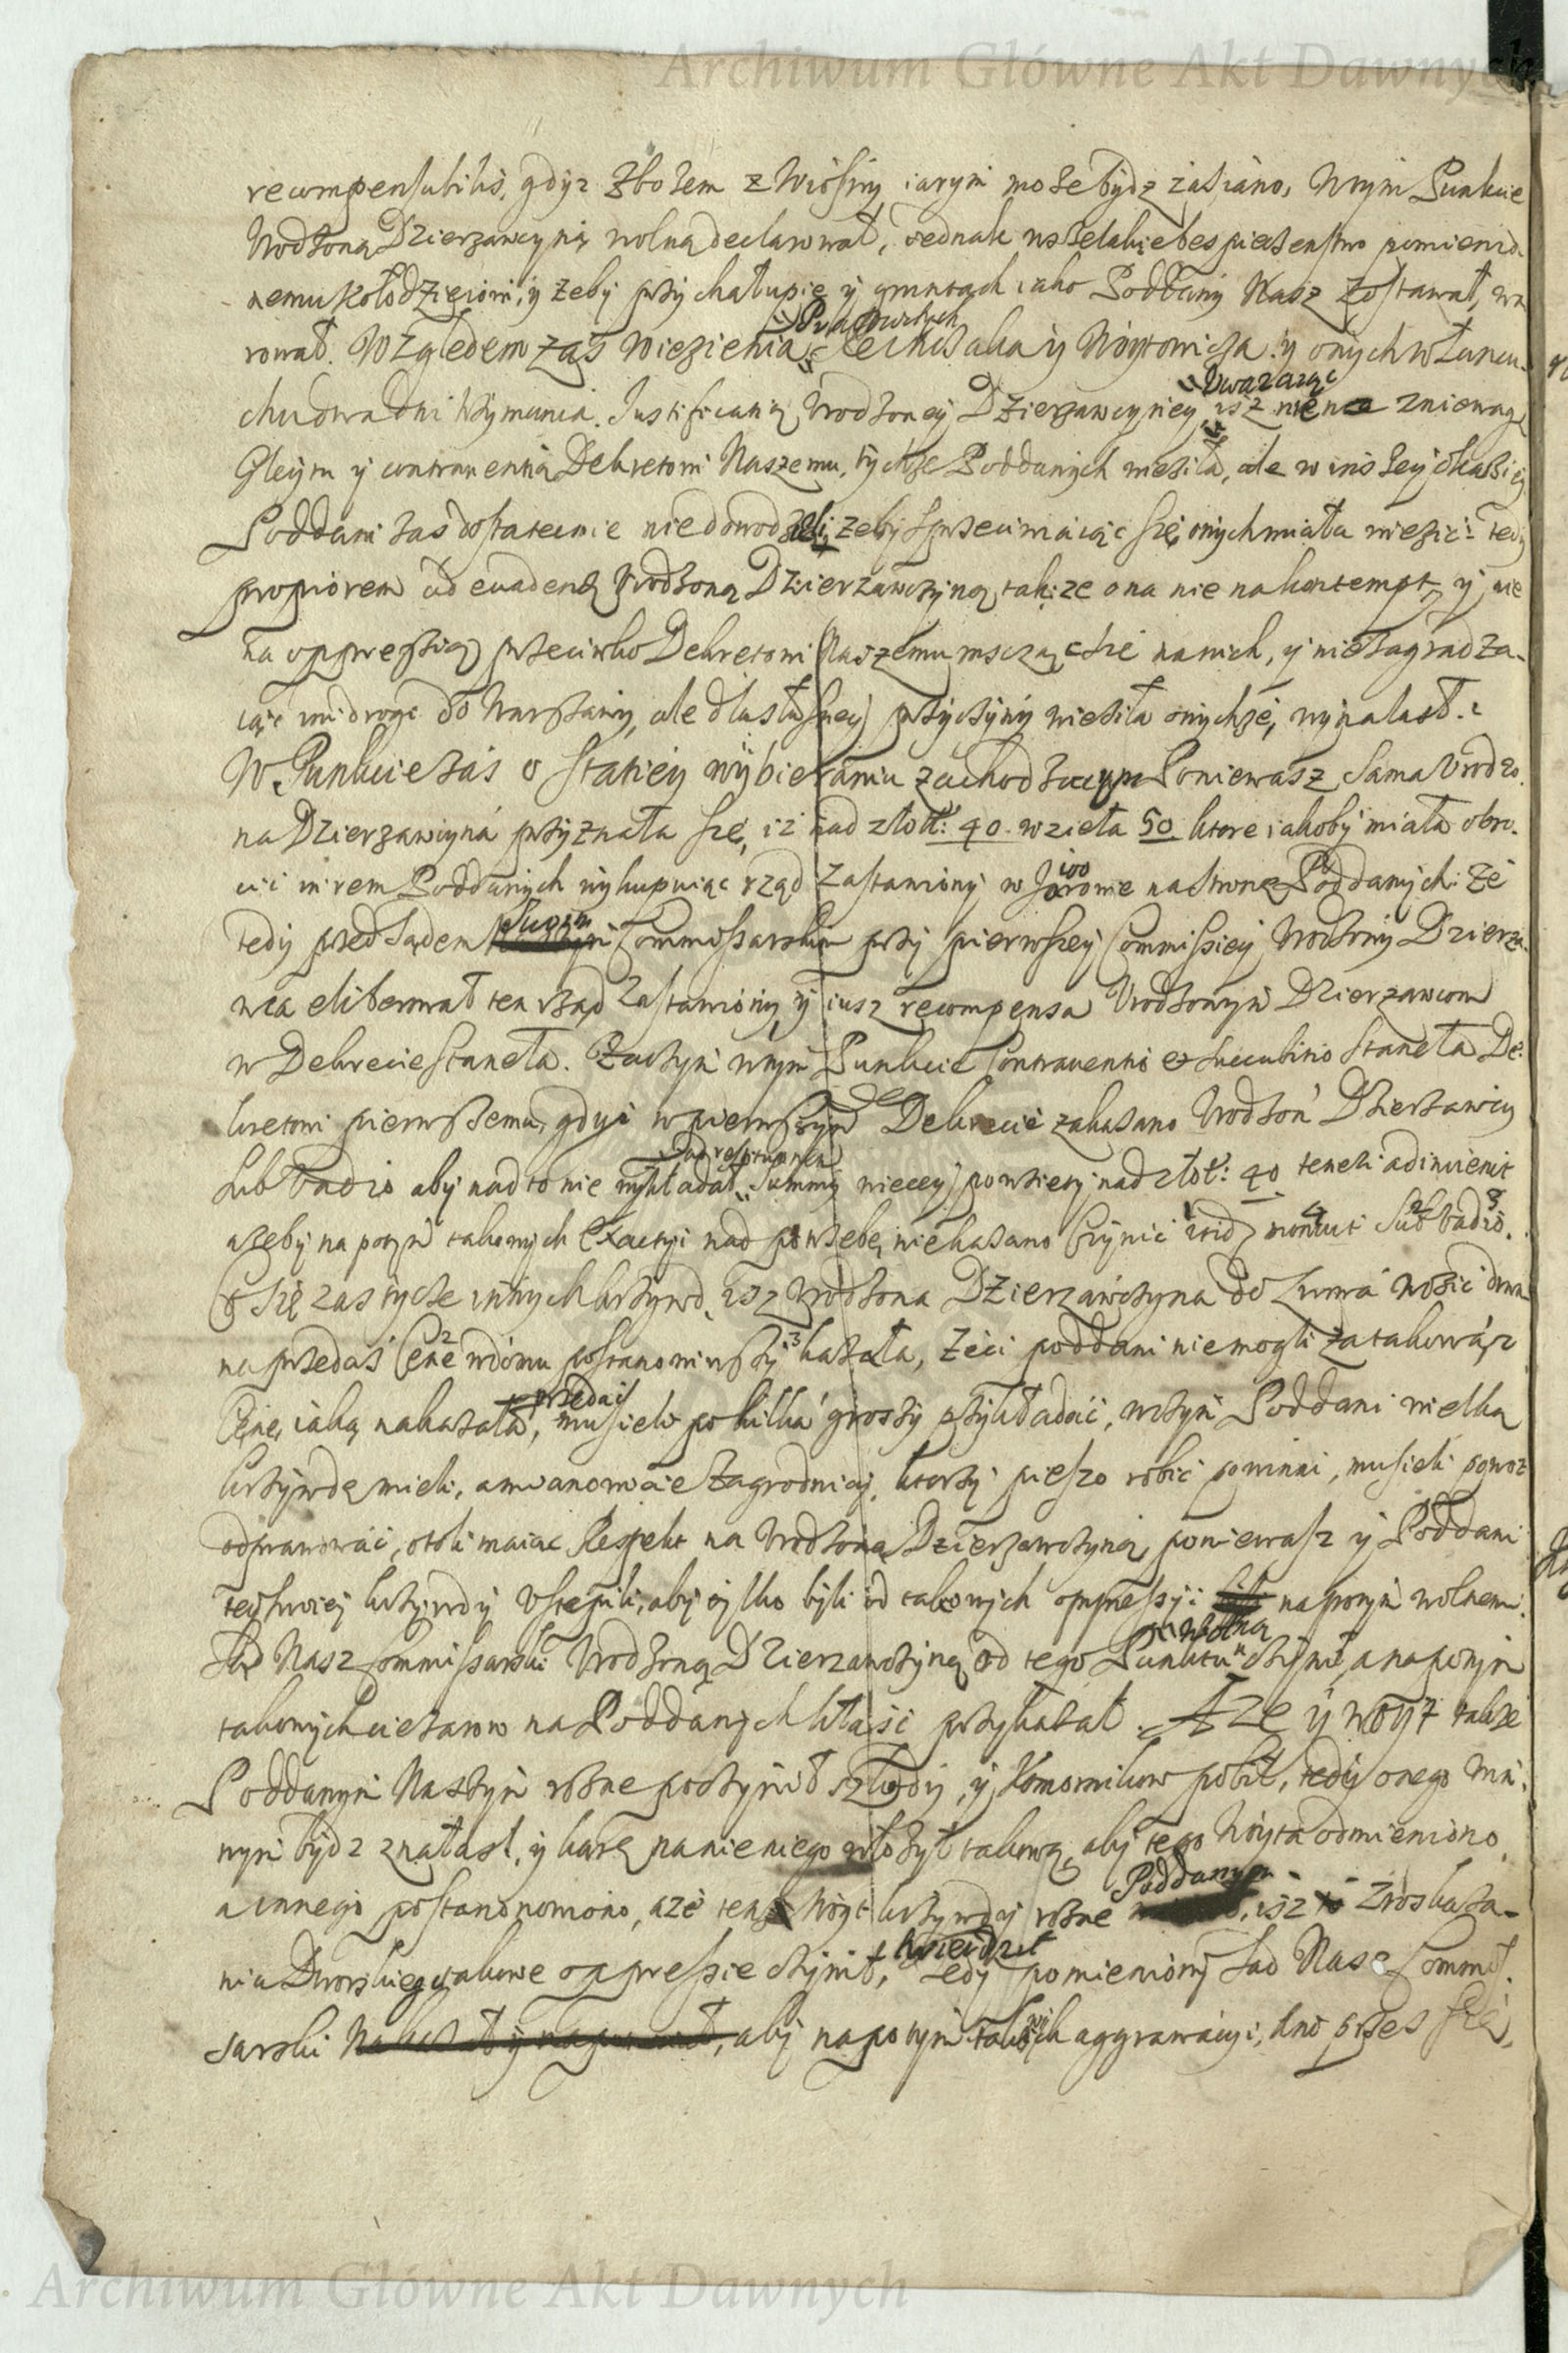 Archiwum Główne Akt Dawnych
recompensubilis, gdyz zbozem z Wiosny iarym moze bydz zasiano, Wtym Punkcie
Urodzoną Dzierzawcyną wolną declarował, iednak wszelakie bespieczenstwo pomienio-
nemu Kołodzieiowi, y zeby przy chałupie y gruntach iako Poddany Nasz zostawał, wa
rował. Względem zaś Wiezienia y Woytowicza y onych w łancu-
chu dwa dni trzymania. Justificatią Urodzoney Dzierzawcyney, Uwazaiąc isz nie na zniewagę
Gleytu y contrauentią Dekretowi Naszemu, tychze Poddanych wieziła, ale w inszey okaziey
Poddani zas dostatecnie niedowodzili, zeby sprzeciwiaiąc się onych miała wiezic: tedy
propiorem ad euadendū Urodzoną Dzierzawczyną, takize ona nie na kontempt, y nie
na oppressią przeciwko Dekretowi Naszemu mscząc sie na nich, y nie zagradza-
iąc im droge do Warszawy, ale dla słuszney przyczyny wieziła onychze, wynalasł.
W Punkcie zas o staciey wybieraniu zachodzącym Poniewasz Sama Urodzo-
na Dzierzawcyna przyznała się, iż nad złot: 40. wzieła 50 ktore iakoby miała obro-
cic in rem Poddanych wykupuiąc rząd zastawiony w na strone Poddanych: Ze
tedy przed Sądem Commissarskim przy pierwszey Commissiey Urodzony Dzierza-
wca eliberował ten rząd zastawiony, y iusz recompensa Urodzonym Dzierzawcom
w Dekrecie staneła. Zaczym wtym Punkcie Contrauentio et succubitio staneła De-
kretowi pierwszemu, gdyż w pierwszym Dekrecie zakazano Urodzon Dzierzawcy
sub vadio aby nad to nie wykładał Summy wiecey powziety nad złot: 40
azeby na potym takowych Exactyi nad potrzebę, nie kazano czynic sub vadio.
Co się zas tycze innych krzywd, isz Urodzona Dzierzawczyna do Zurowa wozic drwa
na przedaż Cenę wdomu postanowiwszy kazała, Zeci poddani niemogli za takową
Cenę, iaką nakazała, przedaiſ musieli po kilka groszy przykładac, wczym Poddani wielką
krzywdę mieli, a mianowicie Zagrodnicy, ktorzy pieszo robic powinni, musieli powoz
odprawowac, otoli maiąc Respekt na Urodzoną Dzierzawczyną, poniewasz y Poddani
tey swoiey krzywdy ustąpili, aby tylko byli od takowych oppressyi na potym wolnemi.
Sąd Nasz Commissarski Urodzoną Dzierzawczyną od tego Punktu wolną czyni, a na potym
takowych ciezarow na Poddanych kłaść przykazał. Aze y Woyt także
Poddanym Naszym rozne poczynił szkody, y Komornikow pobił, tedy onego win-
nym bydz znalasł, y karę na nieniego włozył takową, aby tego Woyta odmieniono,
a innego postanonowiono, aże ten Woyt krzywdy rozne Poddanym, isz z roskaza-
nia Dworskiego, takowe oppressie czynił, tedy pomieniony Sąd Nasz Commis-
sarski aby napotym takowych aggrawacyi,
Archiwum Główne Akt Dawnych